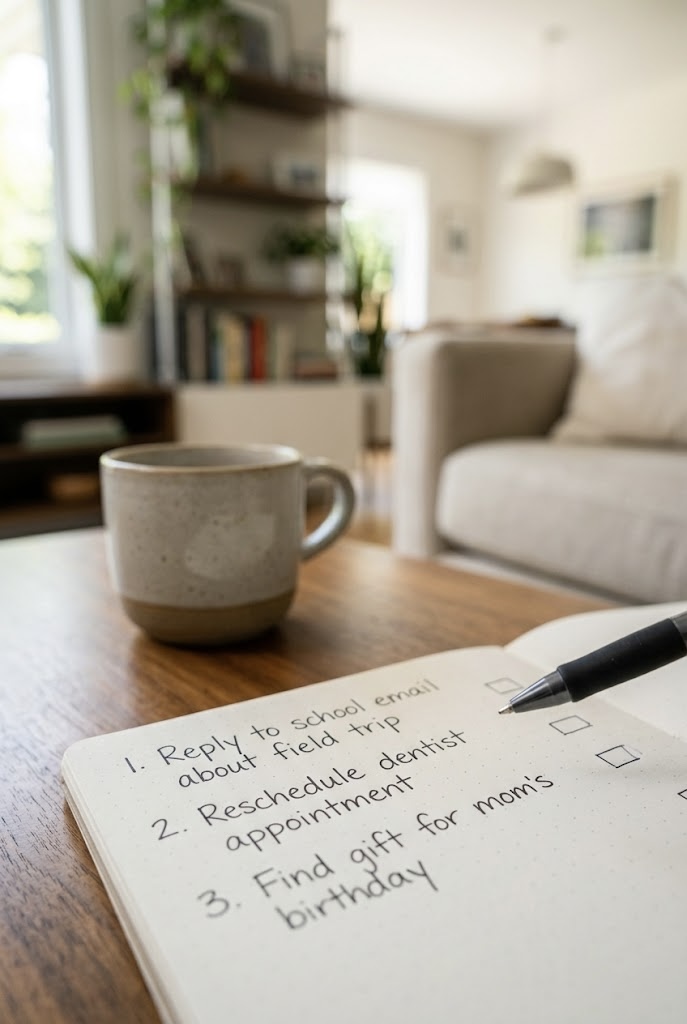 1. Reply to school email
about field trip
2. Reschedule dentist
appointment
3. Find gift for mom's
birthday